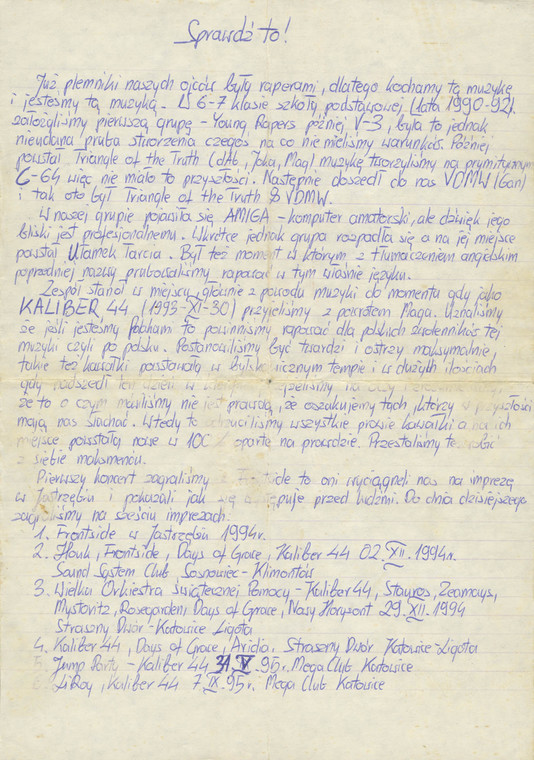 Sprawdź to!
Już plemniki naszych ojców były raperami, dlatego kochamy tą muzykę
i jesteśmy tą muzyką. W 6-7 klasie szkoły podstawowej (lata 1990-92)
założyliśmy pierwszą grupę - Young Rapers później V-3, była to jednak
nieudana pruba stworzenia czegoś na co nie mieliśmy warunków. Później
powstał Triangle of the Truth (dAb, Joka, Mag) muzykę tworzyliśmy na prymitywnym
C-64 więc nie miało to przyszłości. Następnie doszedł do nas VDMW (Gan)
i tak oto był Triangle of the Truth & VDMW.
W naszej grupie pojawiła się AMIGA - komputer amatorski, ale dźwięk jego
bliski jest profesjonalnemu. Wkrótce jednak grupa rozpadła się a na jej miejsce
powstał Ułamek Tarcia. Był też moment w którym z tłumaczeniem angielskim
poprzedniej nazwy prubowaliśmy rapować w tym właśnie języku.
Zespół stanął w miejscu, głównie z powodu muzyki do momentu gdy jako
KALIBER 44 (1993-XI-30) przyjeliśmy z powrotem Maga. Uznaliśmy
że jeśli jesteśmy Polakami to powinniśmy rapować dla polskich zwolenników tej
muzyki czyli po polsku. Postanowiliśmy być twardzi i ostrzy maksymalnie,
takie też kawałki powstawały w błyskawicznym tempie i w dużych ilościach
gdy nadszedł ten dzień w
że to o czym mówiliśmy nie jest prawdą, że oszukujemy tych, którzy w przyszłości
mają nas słuchać. Wtedy to odrzuciliśmy wszystkie prawie kawałki a na ich
miejsce powstały nowe w 100% oparte na prawdzie. Przestaliśmy też robić
z siebie maksmenów.
Pierwszy koncert zagraliśmy z Frontside to oni wyciągneli nas na imprezę
w Jastrzębiu i pokazali jak się występuje przed ludźmi. Do dnia dzisiejszego
zagraliśmy na sześciu imprezach.
1. Frontside w Jastrzębiu 1994r.
2. Houk, Frontside, Days of Grace, Kaliber 44 02.XII.1994r.
Sound System Club Sosnowiec - Klimontów
3. Wielka Orkiestra Świątecznej Pomocy - Kaliber 44, Stauros, Zeamays,
Myslovitz, Rosegarden, Days of Grace, Nasy Horyzont 29.XII.1994
Straszny Dwór - Katowice Ligota
4. Kaliber 44, Days of Grace, Aridia. Straszny Dwór Katowice-Ligota
5. Jump Party - Kaliber 44 31.V.95r. Mega Club Katowice
6. LiRoy, Kaliber 44 7.IX.95r. Mega Club Katowice